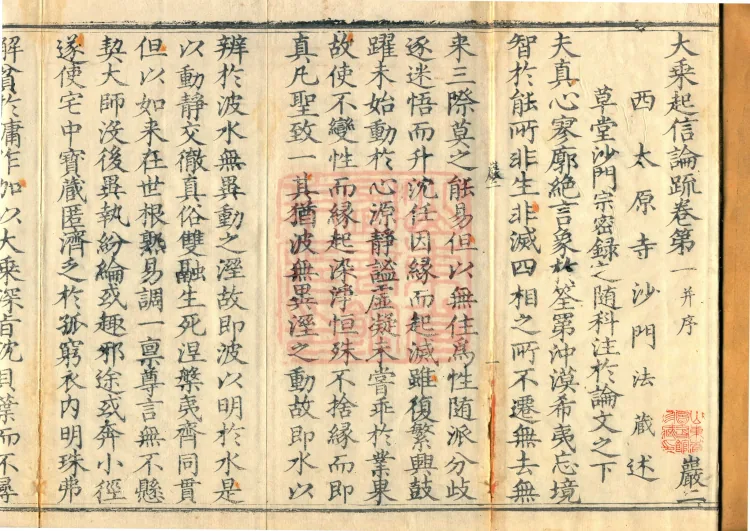 大乘起信論䟽卷第一并序
西太原寺沙門法藏述
巖二
草堂沙門宗密録之随科注於論文之下
夫真心寥廓絶言象扵筌罤沖漠希夷忘境
智於能所非生非滅四相之所不遷無去無
来三際莫之能易但以無住爲性随派分歧
逐迷悟而升沉任因緣而起滅雖復繁興鼓
躍未始動於心源靜謐虛凝未甞乖於業果
故使不變性而緣起染淨恒殊不捨緣而即
真凡聖致一其猶波無異溼之動故即水以
辨於波水無異動之溼故即波以明於水是
以動靜交徹真俗雙融生死涅槃夷齊同貫
但以如来在世根熟易調一禀尊言無不懸
契大師沒後異執紛綸或趣邪途或奔小徑
遂使宅中寶藏匿濟之於孤窮衣内明珠弗
解貧於庸作加以大乘深旨沉貝葉而不尋